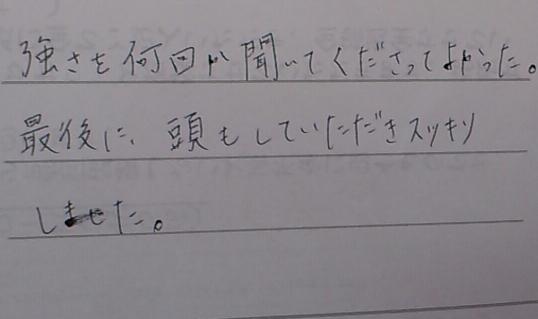 強さを何回か聞いてくださってよかった。
最後に、頭もしていただきスッキリ
しました。